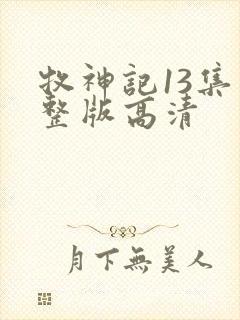 牧神記13集
整版高清
月下無美人